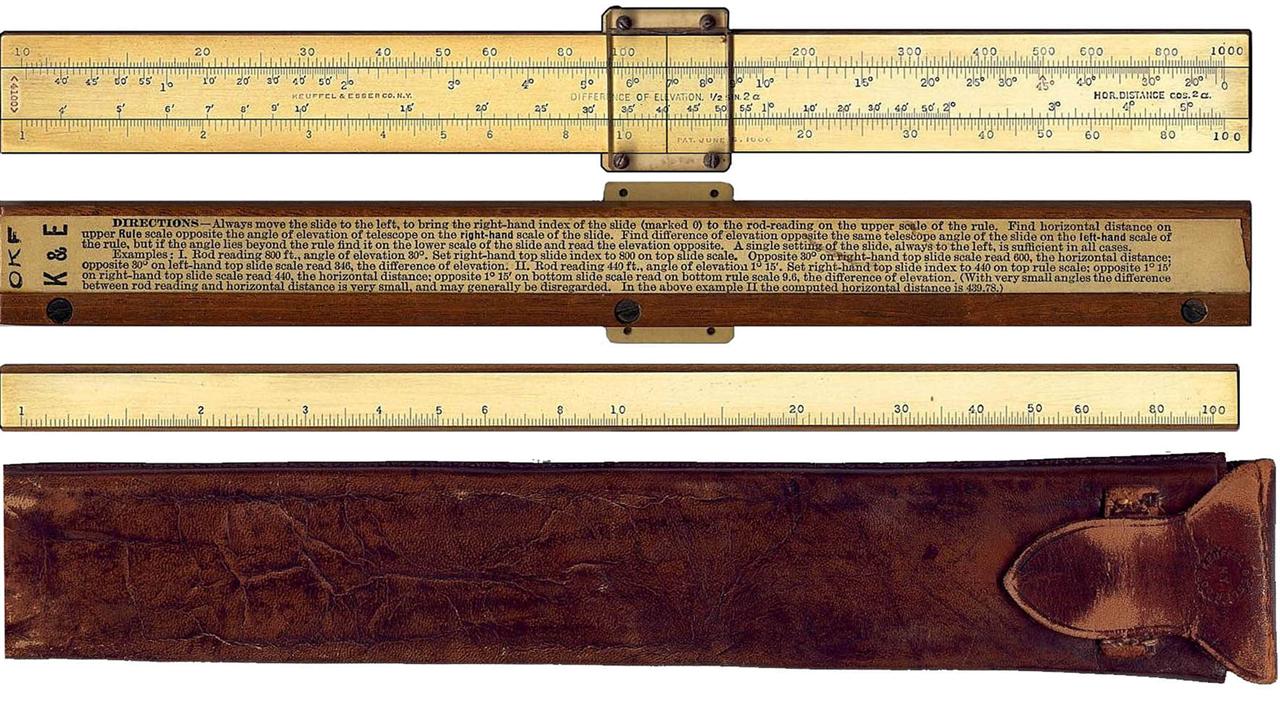 10 20 30 40 50 60 80 100 200 300 400 500 600 800 1000
40' 45' 50' 55' 1° 10' 20' 30' 40' 50' 2° 3° 4° 5° 6° 7° 8° 9° 10° 15° 20° 25° 30° 40° 45° 40° 30° 20° 0
<4100> KEUFFEL & ESSER CO. N.Y. DIFFERENCE OF ELEVATION. ½ SIN. 2 α. HOR. DISTANCE COS.² α.
4' 5' 6' 7' 8' 9' 10' 15' 20' 25' 30' 35' 40' 45' 50' 55' 1° 10' 20' 30' 40' 50' 2° 3° 4° 5°
1 2 3 4 5 6 8 10 20 30 40 50 60 80 100
PAT. JUNE
K & E
DIRECTIONS—Always move the slide to the left, to bring the right-hand index of the slide (marked 0) to the rod-reading on the upper scale of the rule. Find horizontal distance on
upper Rule scale opposite the angle of elevation of telescope on the right-hand scale of the slide. Find difference of elevation opposite the same telescope angle of the slide on the left-hand scale of
the rule, but if the angle lies beyond the rule find it on the lower scale of the slide and read the elevation opposite. A single setting of the slide, always to the left, is sufficient in all cases.
Examples: I. Rod reading 800 ft., angle of elevation 30°. Set right-hand top slide index to 800 on top slide scale. Opposite 30° on right-hand top slide scale read 600, the horizontal distance;
opposite 30° on left-hand top slide scale read 346, the difference of elevation. II. Rod reading 440 ft., angle of elevation 1° 15'. Set right-hand top slide index to 440 on top rule scale; opposite 1° 15'
on right-hand top slide scale read 440, the horizontal distance; opposite 1° 15' on bottom slide scale read on bottom rule scale 9.6, the difference of elevation. (With very small angles the difference
between rod reading and horizontal distance is very small, and may generally be disregarded. In the above example II the computed horizontal distance is 439.78.)
1 2 3 4 5 6 8 10 20 30 40 50 60 80 100